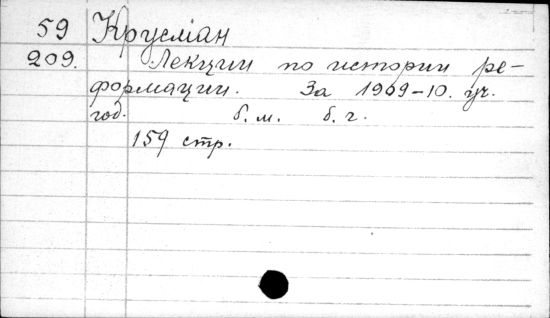 59 Крусман
209. Лекции по истории ре-
формации. За 1909-10. уч.
год. б. м. б. г.
159 стр.